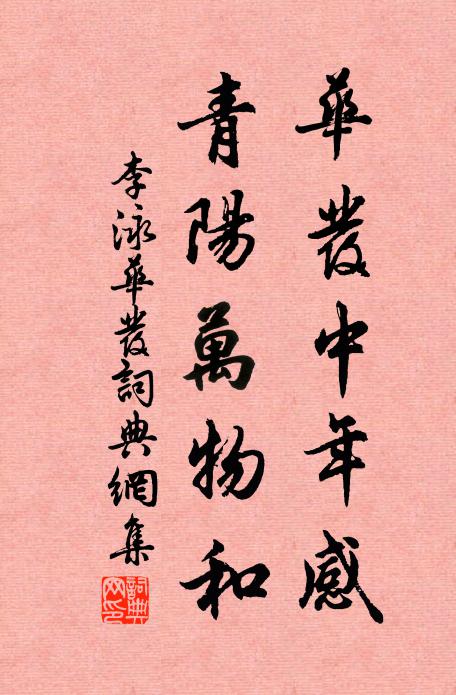 華發中年感
青陽萬物和
李泳華發詞典網集
詞典
网印